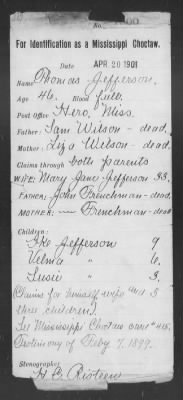 No. 
For Identification as a Mississippi Choctaw.
Date APR 20 1901
Name Thomas Jefferson.
Age 46. Blood full.
Post Office Hero, Miss.
Father: Sam Wilson - dead.
Mother: Liza Wilson - dead.
Claims through both parents
WIFE: Mary Jane Jefferson 33.
FATHER: John Frenchman - dead.
MOTHER: — Frenchman - dead
Children:
Ike Jefferson 9
Velma " 6.
Susie " 3.
Claims for himself, wife and 3
three children.
See Mississippi Choctaw card #415.
Testimony of Feby 7, 1899.
Stenographer
H C Risteen